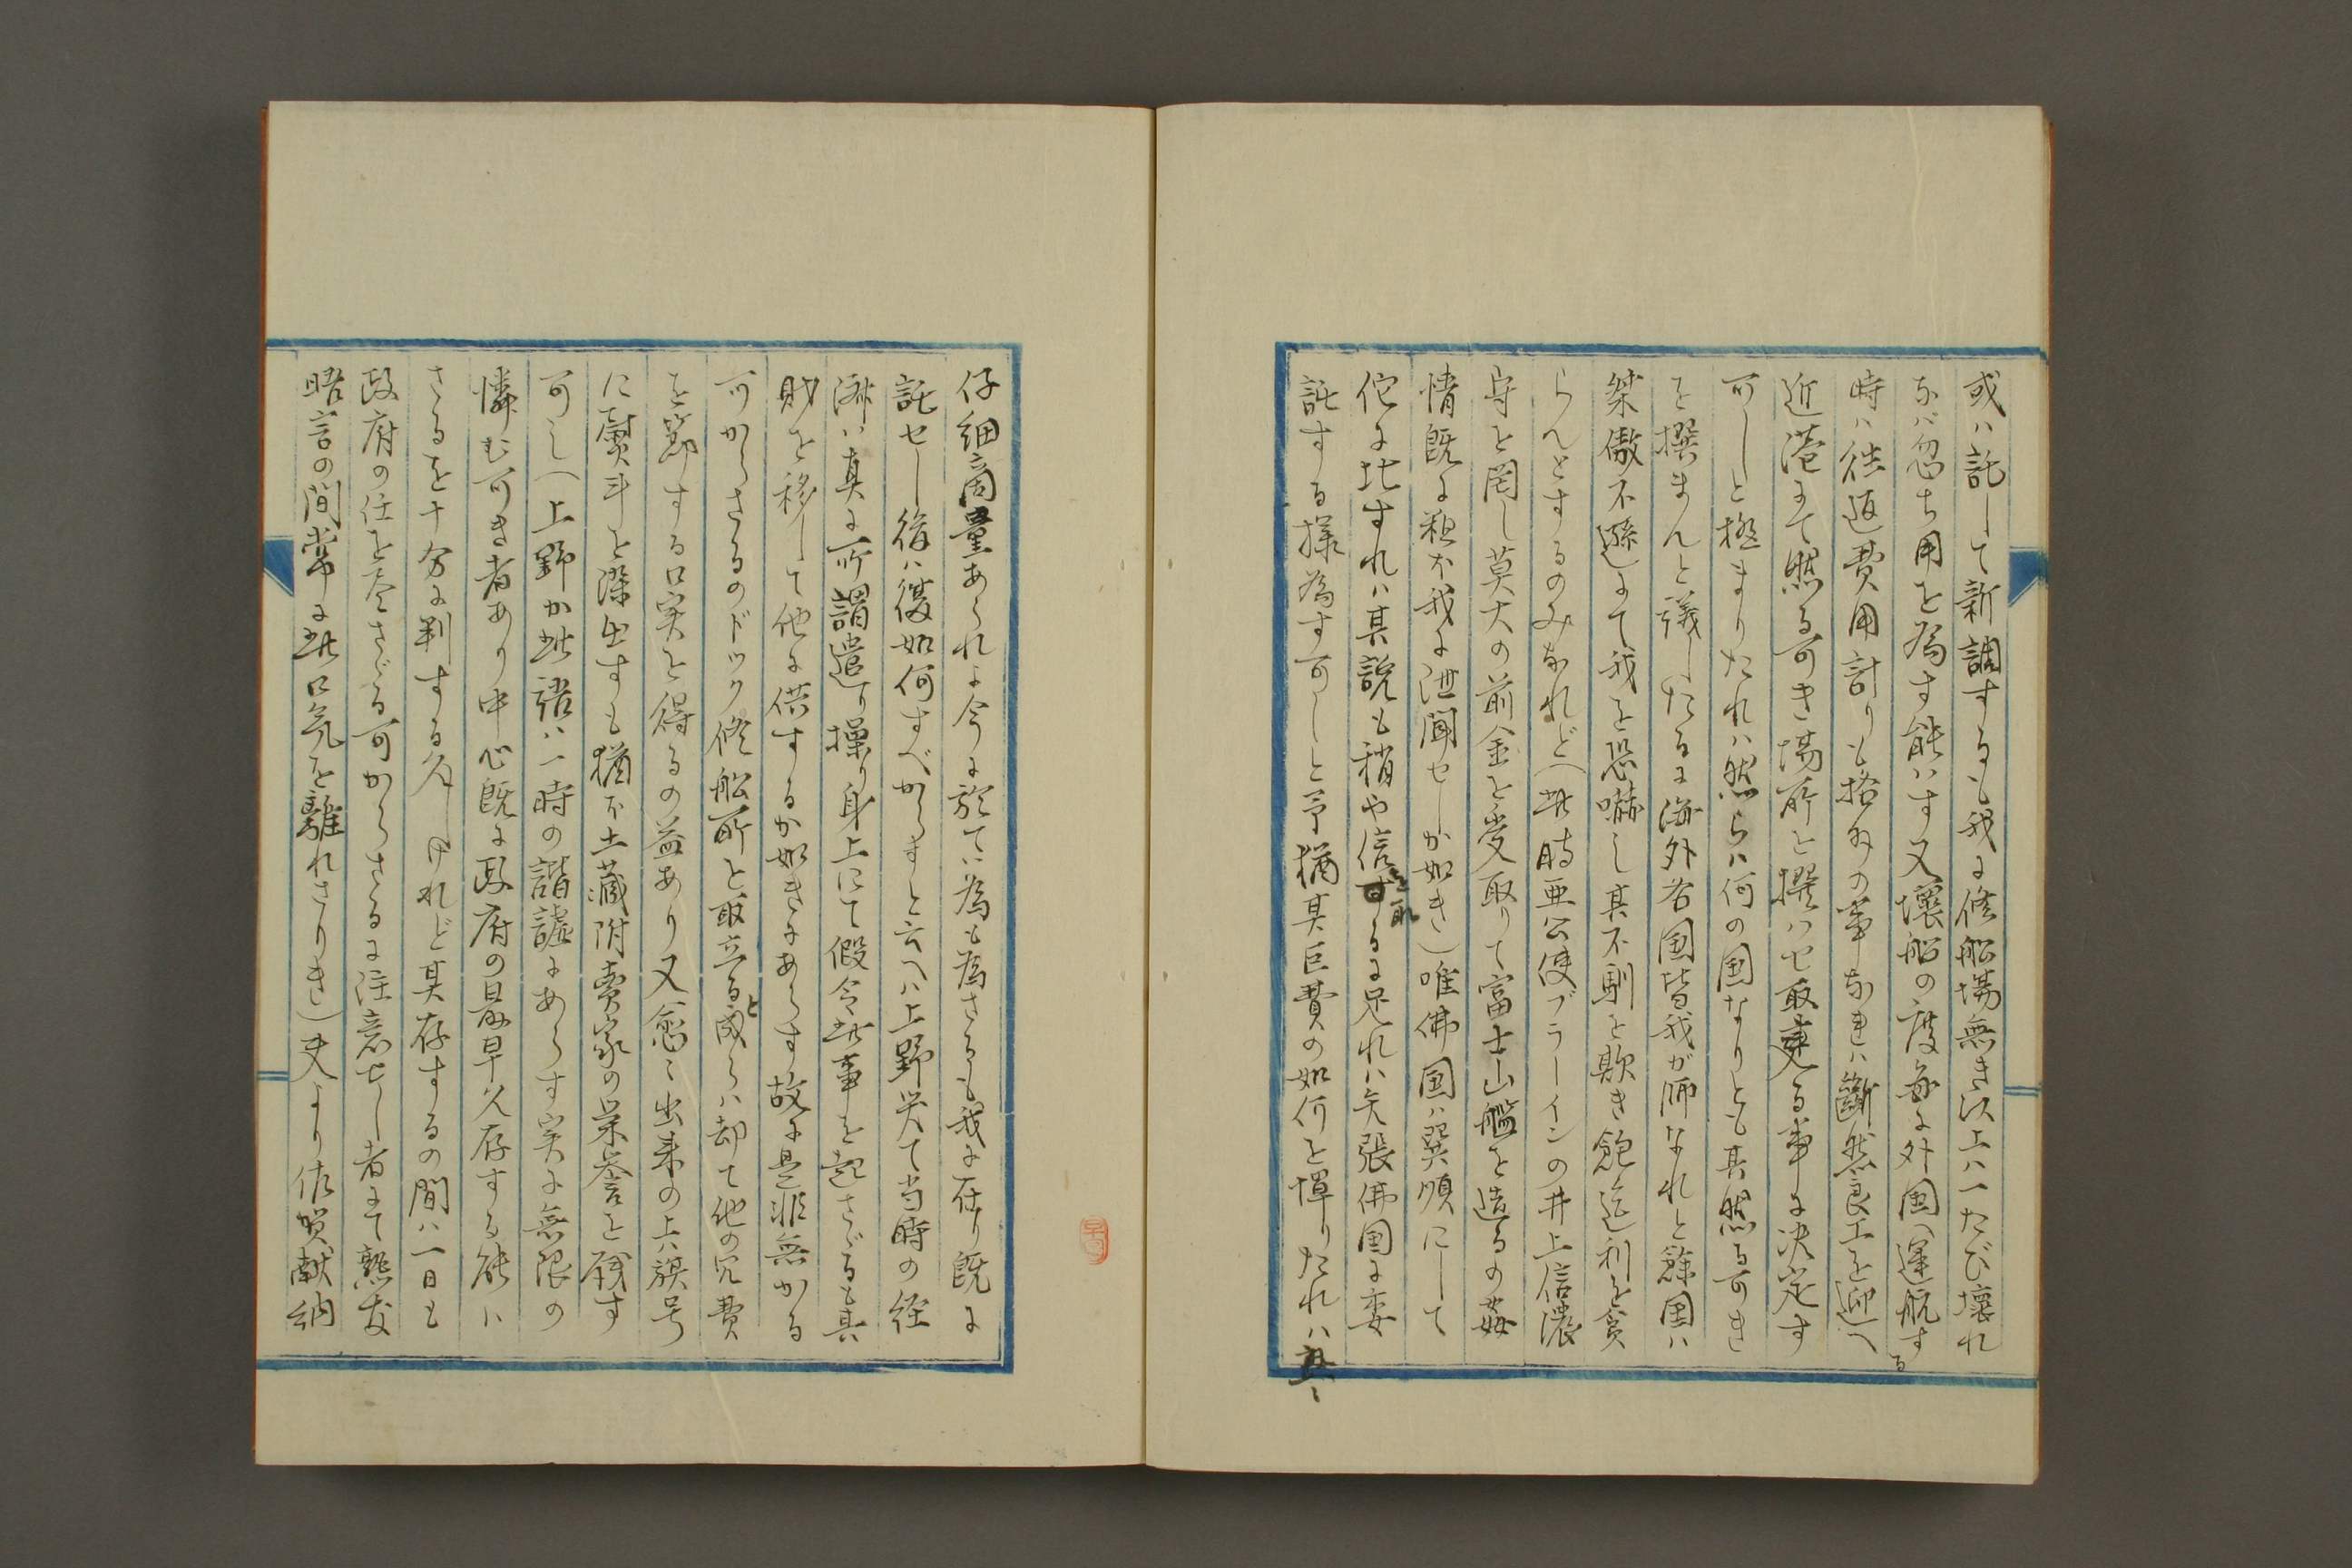 或ハ託して新調するも我に修船場無き以上ハ一たび壊れ
なバ忽ち用を為す能ハす又壊船の度毎に外国へ運航する
時ハ往返費用計りも格外の事なれハ断然良工を迎へ
近港にて然る可き場所を撰ハせ取建る事に決定す
可しと極まりたれハ然らハ何の国なりとも其然る可き
を撰まんと議したるに海外各国皆我が師なれと餘国ハ
桀傲不遜にて我を恐嚇し其不馴を欺き飽迄利を貪
らんとするのみなれど（此時亜公使プラーインの井上信濃
守を罔し莫大の前金を受取りて富士山艦を造るの姦
情既に粗ホ我に洩聞せしか如き）唯佛国ハ巽順にして
佗に比すれハ其説も稍や信するに足れハ矢張佛国に委
託する様為す可しと予猶其巨費の如何を憚りたれハ其ゝ
仔細商量あられよ今に於てハ為も為さるも我に在り既に
託せし後ハ復如何すべからすと云へハ上野笑て当時の経
済ハ真に所謂遣り操り身上にて假令此事を起さゞるも其
財を移して他に供するか如きにあらす故に是非無かる
可からさるのドック修船所を取立ると成らハ却て他の冗費
を節する口実を得るの益あり又愈ゝ出来の上ハ旗号
に熨斗を染出すも猶ホ土蔵附売家の栄誉を残す
可し（上野か此語ハ一時の諧謔にあらす実に無限の
憐む可き者あり中心既に政府の最早久存する能ハ
さるを十分に判する久しけれど其存するの間ハ一日も
政府の任を尽さゞる可からさるに注意せし者にて熟友
晤言の間常に此口気を離れさりき）夫より佐賀献納